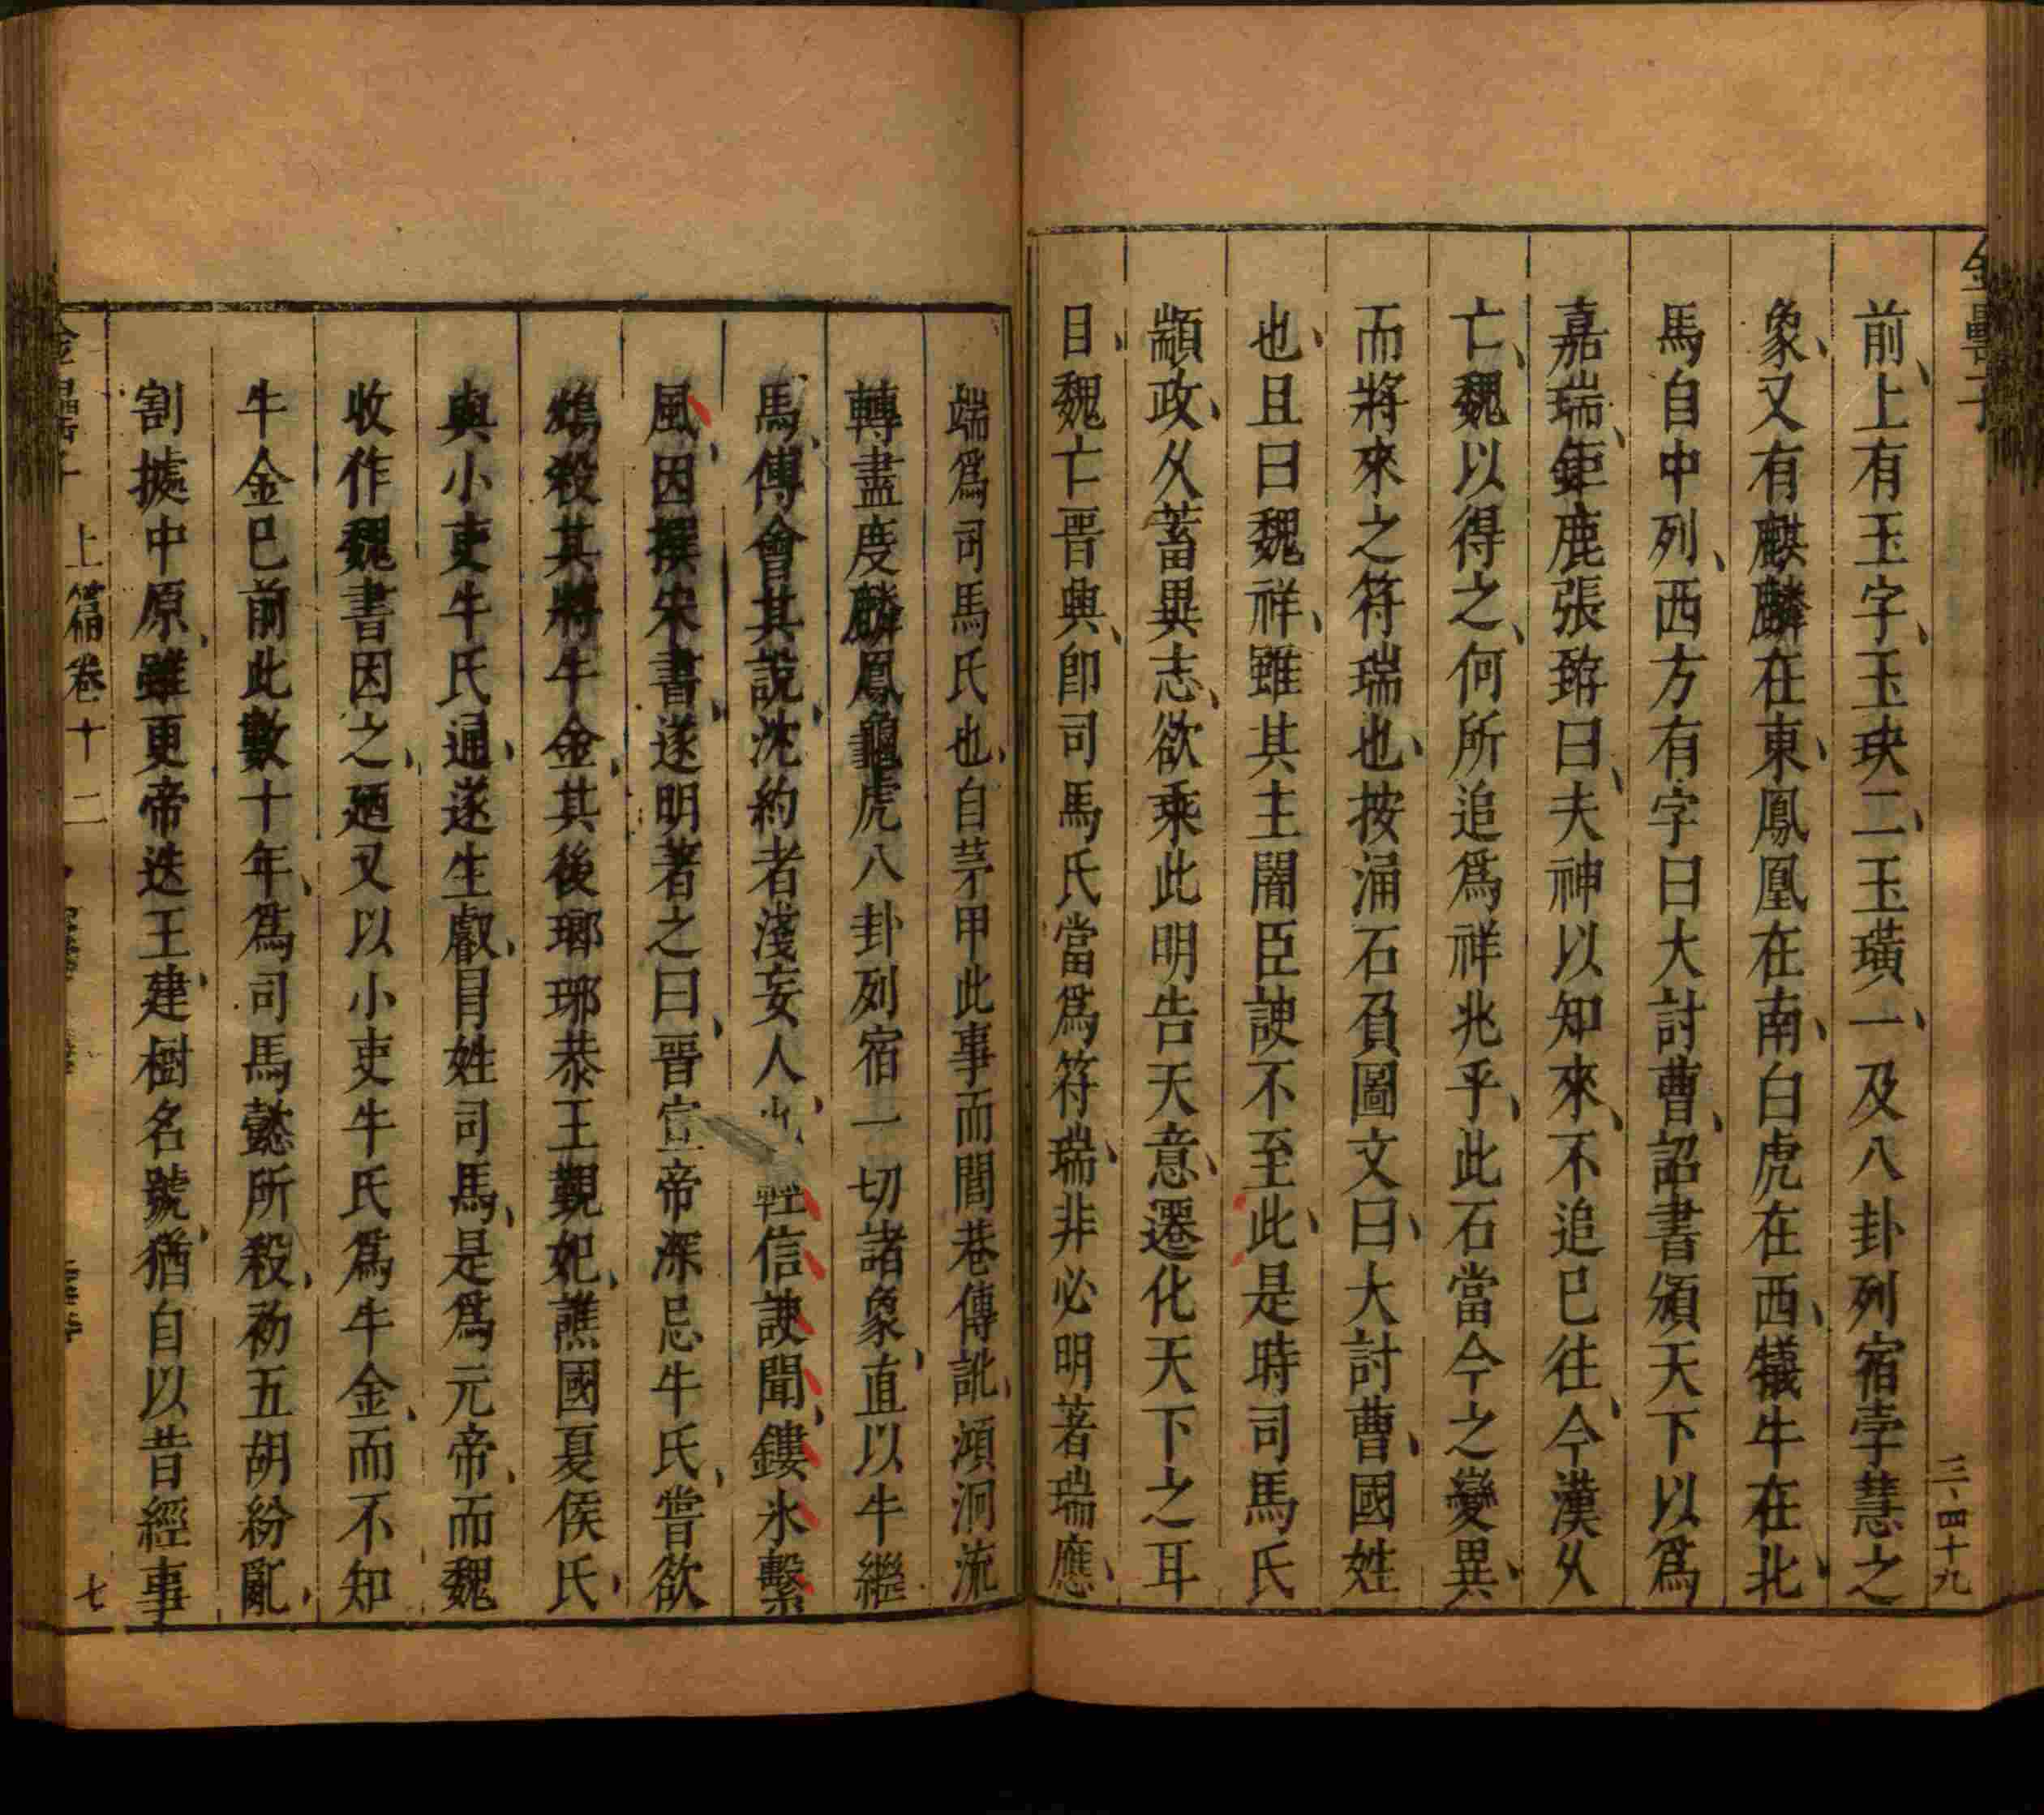 前上有玉字玉玦二玉璜一及八卦列宿孛彗之
象又有麒麟在東鳳凰在南白虎在西犧牛在北
馬自中列西方有字曰大討曹詔書頒天下以爲
嘉瑞鉅鹿張臶曰夫神以知來不追巳往今漢久
亡魏以得之何所追爲祥兆乎此石當今之變異
而將來之符瑞也按涌石負圖文曰大討曹國姓
也且曰魏祥雖其主闇臣諛不至此是時司馬氏
顓政久蓄異志欲乘此明告天意遷化天下之耳
目魏亡晋興卽司馬氏當爲符瑞非必明著瑞應
三四十九
端爲司馬氏也自茅甲此事而閭巷傳訛澒洞流
轉盡度麟鳳龜虎八卦列宿一切諸象直以牛繼
馬傳會其說沈約者淺妄人也輕信諛聞鏤氷繫
風因撰宋書遂明著之曰晋宣帝深忌牛氏嘗欲
鴆殺其將牛金其後瑯琊恭王覲妃譙國夏侯氏
與小吏牛氏通遂生叡冐姓司馬是爲元帝而魏
收作魏書因之廼又以小吏牛氏爲牛金而不知
牛金巳前此數十年爲司馬懿所殺初五胡紛亂
割據中原雖更帝迭王建樹名號猶自以昔經事
上篇卷十二
七